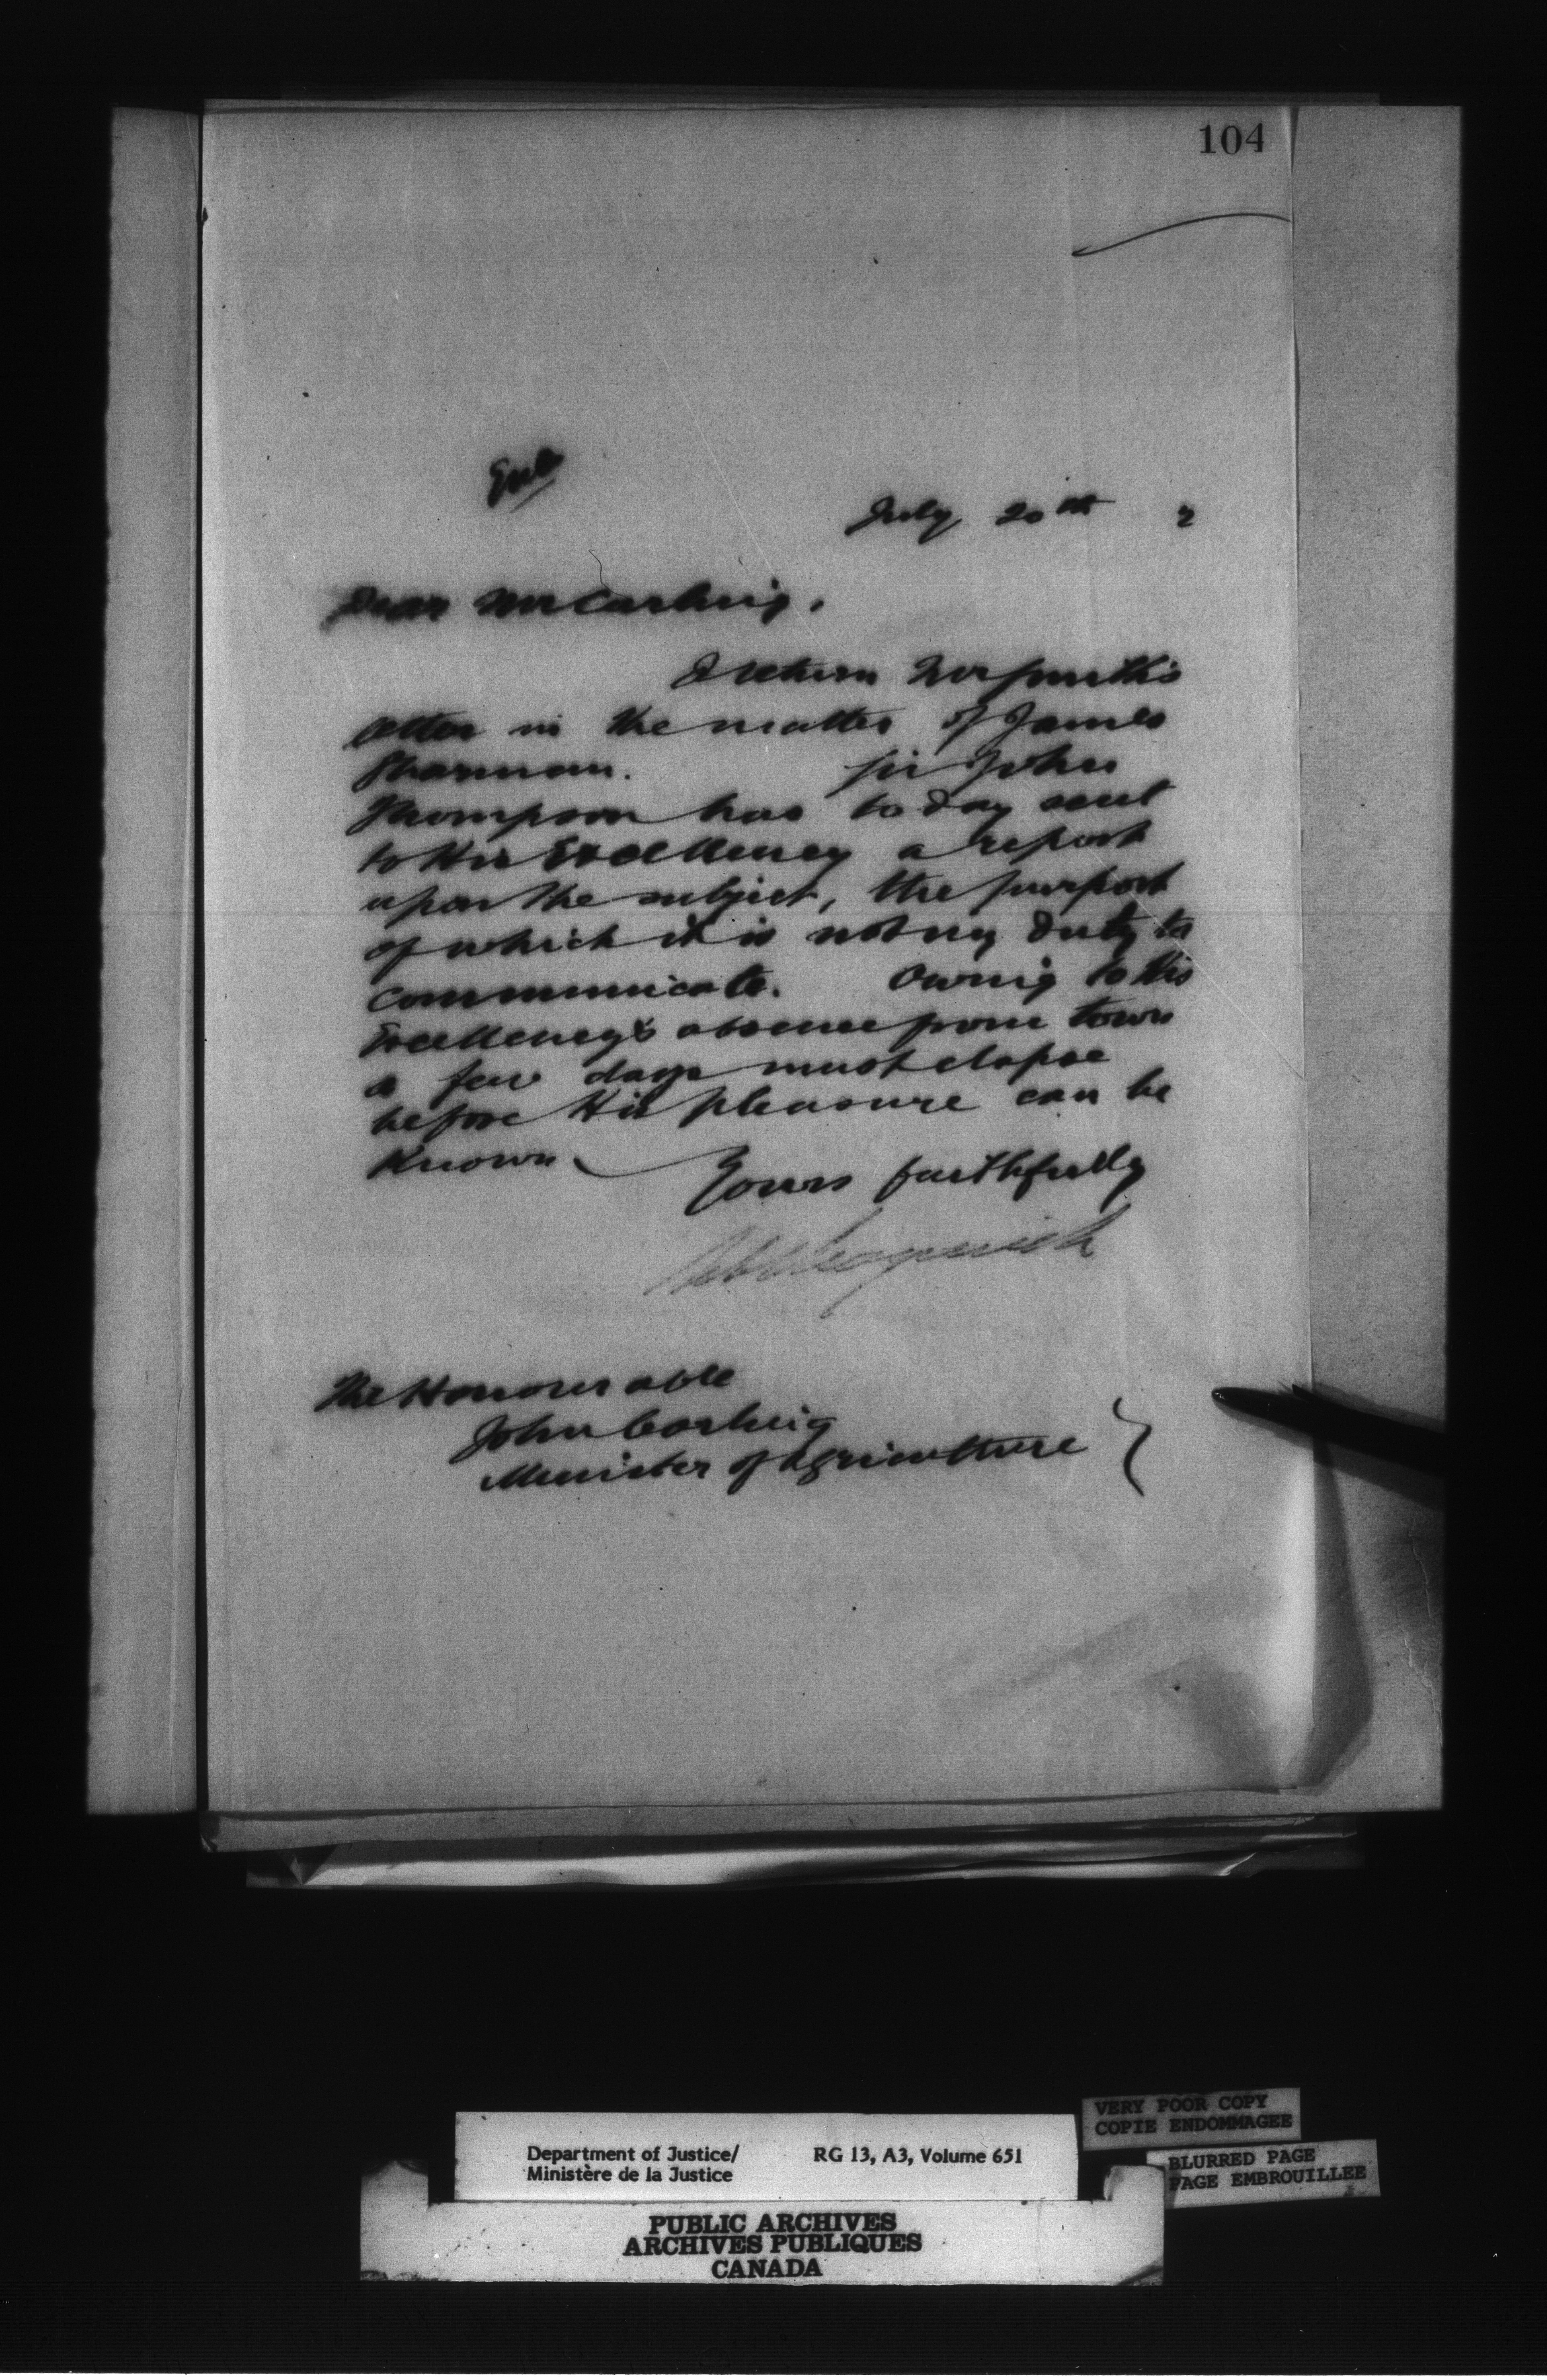 104
Encl
July 20th 2
Dear Mr Carling,
I return Mr Smith's
letter in the matter of James
Sharman. Sir John
Thompson has to day sent
to His Excellency a report
upon the subject, the purport
of which it is not my duty to
communicate. Owing to His
Excellency's absence from town
a few days must elapse
before His pleasure can be
known.
Yours faithfully
The Honourable
John Carling
Minister of Agriculture
VERY POOR COPY
COPIE ENDOMMAGEE
Department of Justice/ RG 13, A3, Volume 651
Ministère de la Justice
BLURRED PAGE
PAGE EMBROUILLEE
PUBLIC ARCHIVES
ARCHIVES PUBLIQUES
CANADA